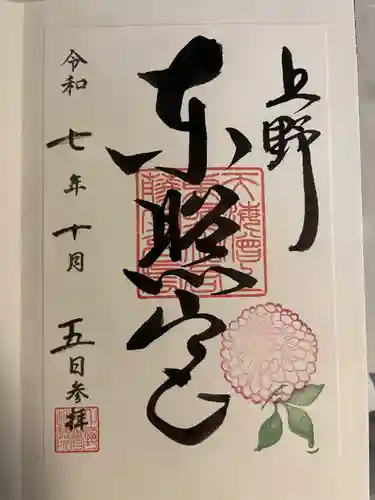 上野
東照宮
令和七年十月五日参拝